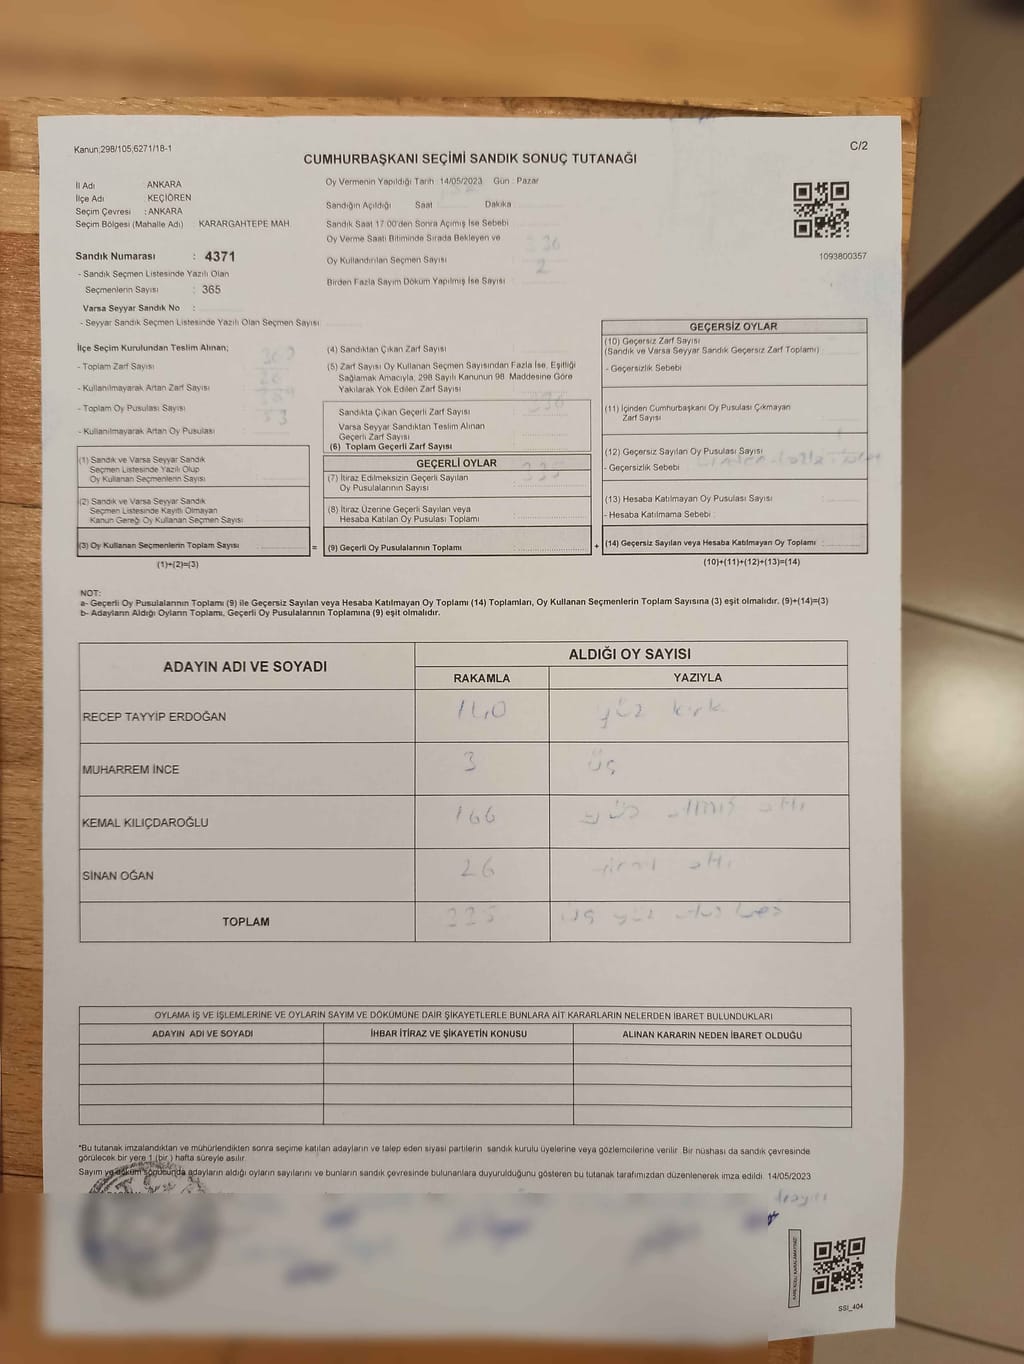 Kanun;298/105,6271/18-1
C/2
CUMHURBAŞKANI SEÇİMİ SANDIK SONUÇ TUTANAĞI
İl Adı ANKARA
İlçe Adı KEÇİÖREN
Seçim Çevresi : ANKARA
Seçim Bölgesi (Mahalle Adı) KARARGAHTEPE MAH.
Oy Vermenin Yapıldığı Tarih 14/05/2023 Gün : Pazar
Sandığın Açıldığı Saat Dakika
Sandık Saat 17:00'den Sonra Açımış İse Sebebi
Oy Verme Saati Bitiminde Sırada Bekleyen ve
Oy Kullandırılan Seçmen Sayısı
2
Birden Fazla Sayım Döküm Yapılmış İse Sayısı
1093800357
Sandık Numarası : 4371
- Sandık Seçmen Listesinde Yazılı Olan
Seçmenlerin Sayısı : 365
Varsa Seyyar Sandık No :
- Seyyar Sandık Seçmen Listesinde Yazılı Olan Seçmen Sayısı
İlçe Seçim Kurulundan Teslim Alınan;
- Toplam Zarf Sayısı
- Kullanılmayarak Artan Zarf Sayısı
- Toplam Oy Pusulası Sayısı
- Kullanılmayarak Artan Oy Pusulası
(1) Sandık ve Varsa Seyyar Sandık
Seçmen Listesinde Yazılı Olup
Oy Kullanan Seçmenlerin Sayısı
(2) Sandık ve Varsa Seyyar Sandık
Seçmen Listesinde Kayıtlı Olmayan
Kanun Gereği Oy Kullanan Seçmen Sayısı
(3) Oy Kullanan Seçmenlerin Toplam Sayısı
(1)+(2)=(3)
(4) Sandıktan Çıkan Zarf Sayısı
(5) Zarf Sayısı Oy Kullanan Seçmen Sayısından Fazla İse, Eşitliği
Sağlamak Amacıyla, 298 Sayılı Kanunun 98. Maddesine Göre
Yakılarak Yok Edilen Zarf Sayısı
Sandıkta Çıkan Geçerli Zarf Sayısı 336
Varsa Seyyar Sandıktan Teslim Alınan
Geçerli Zarf Sayısı
(6) Toplam Geçerli Zarf Sayısı
GEÇERLİ OYLAR
(7) İtiraz Edilmeksizin Geçerli Sayılan 335
Oy Pusulalarının Sayısı
(8) İtiraz Üzerine Geçerli Sayılan veya
Hesaba Katılan Oy Pusulası Toplamı
= (9) Geçerli Oy Pusulalarının Toplamı
GEÇERSİZ OYLAR
(10) Geçersiz Zarf Sayısı
(Sandık ve Varsa Seyyar Sandık Geçersiz Zarf Toplamı)
- Geçersizlik Sebebi
(11) İçinden Cumhurbaşkanı Oy Pusulası Çıkmayan
Zarf Sayısı
(12) Geçersiz Sayılan Oy Pusulası Sayısı
- Geçersizlik Sebebi
(13) Hesaba Katılmayan Oy Pusulası Sayısı
- Hesaba Katılmama Sebebi
+ (14) Geçersiz Sayılan veya Hesaba Katılmayan Oy Toplamı
(10)+(11)+(12)+(13)=(14)
NOT:
a- Geçerli Oy Pusulalarının Toplamı (9) ile Geçersiz Sayılan veya Hesaba Katılmayan Oy Toplamı (14) Toplamları, Oy Kullanan Seçmenlerin Toplam Sayısına (3) eşit olmalıdır. (9)+(14)=(3)
b- Adayların Aldığı Oyların Toplamı, Geçerli Oy Pusulalarının Toplamına (9) eşit olmalıdır.
ADAYIN ADI VE SOYADI
ALDIĞI OY SAYISI
RAKAMLA YAZIYLA
RECEP TAYYİP ERDOĞAN 140 yüz kırk
MUHARREM İNCE 3 üç
KEMAL KILIÇDAROĞLU 166 yüz altmış altı
SİNAN OĞAN 26 yirmi altı
TOPLAM 335 üç yüz otuz beş
OYLAMA İŞ VE İŞLEMLERİNE VE OYLARIN SAYIM VE DÖKÜMÜNE DAİR ŞİKAYETLERLE BUNLARA AİT KARARLARIN NELERDEN İBARET BULUNDUKLARI
ADAYIN ADI VE SOYADI İHBAR İTİRAZ VE ŞİKAYETİN KONUSU ALINAN KARARIN NEDEN İBARET OLDUĞU
*Bu tutanak imzalandıktan ve mühürlendikten sonra seçime katılan adayların ve talep eden siyasi partilerin sandık kurulu üyelerine veya gözlemcilerine verilir. Bir nüshası da sandık çevresinde
görülecek bir yere 1 (bir ) hafta süreyle asılır.
Sayım ve döküm sonucunda adayların aldığı oyların sayılarını ve bunların sandık çevresinde bulunanlara duyurulduğunu gösteren bu tutanak tarafımızdan düzenlenerek imza edildi. 14/05/2023
SSI_404